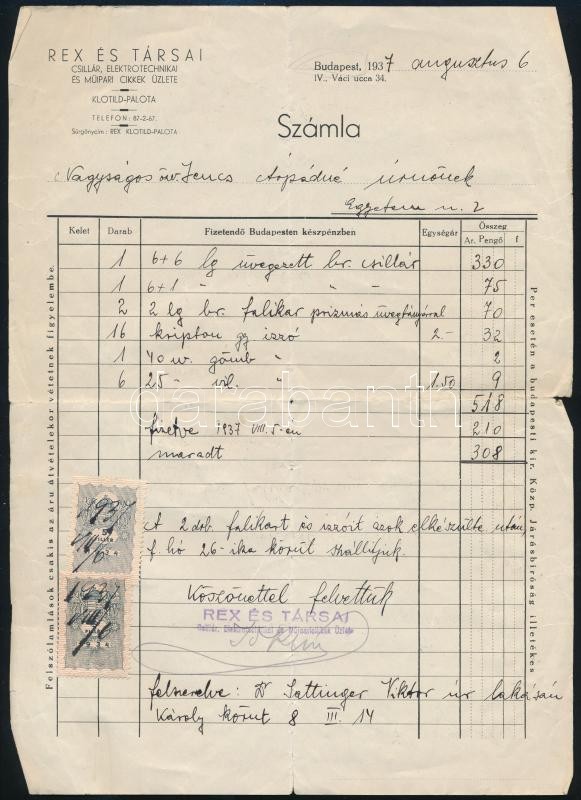 REX ÉS TÁRSAI
CSILLÁR, ELEKTROTECHNIKAI
ÉS MŰIPARI CIKKEK ÜZLETE
KLOTILD-PALOTA
TELEFON: 87-2-67.
Sürgönycím: REX KLOTILD-PALOTA
Budapest, 1937 augusztus 6
IV., Váci ucca 34.
Számla
Nagyságos özv. Jencs Árpádné úrnőnek
Egyetem u. 2
Kelet Darab Fizetendő Budapesten készpénzben Egységár Összeg
Ar. Pengő f
1 6+6 lg üvegezett br. csillár 330
1 6+1 " " " 75
2 2 lg br. falikar prizmás üvegtányérral 70
16 kripton gg izzó 2.- 32
1 40 w. gömb " 2
6 25 - vil. " 1.50 9
518
fizetve 1937 VIII. 5-én 210
maradt 308
A 2 drb. falikart és izzóit azok elkészülte után,
f. hó 26-ika körül szállítjuk.
Köszönettel felvettük
REX ÉS TÁRSAI
Csillár, Elektrotechnikai és Műiparicikkek Üzlete
felszerelve: Dr Sattinger Viktor úr lakásán
Károly körut 8 III. 14
Felszólamlások csakis az áru átvételekor vétetnek figyelembe.
Per esetén a budapesti kir. Közp. Járásbíróság illetékes
1937
VIII/6
1937
VIII/6
darabanth